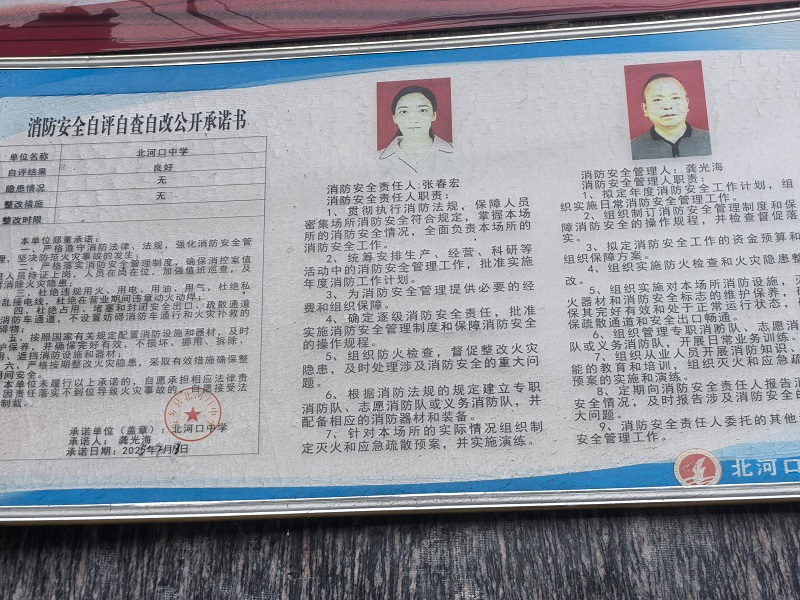 消防安全自评自查自改公开承诺书
单位名称 北河口中学
自评结果 良好
隐患情况 无
整改措施 无
整改时限
本单位郑重承诺：
一、严格遵守消防法律、法规，强化消防安全管
理，坚决防范火灾事故的发生；
二、严格落实消防安全管理制度，确保消控室值
人员持证上岗、人员在岗在位，加强值班巡查，及
消除火灾隐患。
三、杜绝违规用火、用电、用油、用气，杜绝私
批接电线，杜绝在营业期间违章动火动焊；
四、杜绝占用、堵塞和封闭安全出口、疏散通道
消防车通道，不设置妨碍消防车通行和火灾扑救的
碍物；
五、按照国家有关规定配置消防设施和器材，及时
护保养，并确保完好有效，不损坏、挪用、拆除、
用、遮挡消防设施和器材；
六、严格按期整改火灾隐患，采取有效措施确保整
期间安全。
本单位未履行以上承诺的，自愿承担相应法律责
因责任落实不到位导致火灾事故的，自愿接受法
制裁。
承诺单位（盖章）：北河口中学
承诺人：龚光海
消防安全责任人:张春宏
消防安全责任人职责：
1、贯彻执行消防法规，保障人员
密集场所消防安全符合规定，掌握本场
所的消防安全情况，全面负责本场所的
消防安全工作。
2、统筹安排生产、经营、科研等
活动中的消防安全管理工作，批准实施
年度消防工作计划。
3、为消防安全管理提供必要的经
费和组织保障。
4、确定逐级消防安全责任，批准
实施消防安全管理制度和保障消防安全
的操作规程。
5、组织防火检查，督促整改火灾
隐患，及时处理涉及消防安全的重大问
题。
6、根据消防法规的规定建立专职
消防队、志愿消防队或义务消防队，并
配备相应的消防器材和装备。
7、针对本场所的实际情况组织制
定灭火和应急疏散预案，并实施演练。
消防安全管理人：龚光海
消防安全管理人职责：
1、拟定年度消防安全工作计划，组
织实施日常消防安全管理工作。
2、组织制订消防安全管理制度和保
障消防安全的操作规程，并检查督促落
实。
3、拟定消防安全工作的资金预算和
组织保障方案。
4、组织实施防火检查和火灾隐患整
改。
5、组织实施对本场所消防设施、灭
火器材和消防安全标志的维护保养，确
保其完好有效和处于正常运行状态，确
保疏散通道和安全出口畅通。
6、组织管理专职消防队、志愿消
队或义务消防队，开展日常业务训练。
7、组织从业人员开展消防知识、
能的教育和培训，组织灭火和应急疏散
预案的实施和演练。
8、定期向消防安全责任人报告消
安全情况，及时报告涉及消防安全的
大问题。
9、消防安全责任人委托的其他
安全管理工作。
北河口